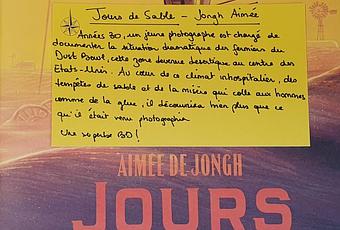 Jours de Sable - Jongh Aimée
Années 30, un jeune photographe est chargé de
documenter la situation dramatique des fermiers du
Dust Bowl, cette zone devenue désertique au centre des
Etats-Unis. Au cœur de ce climat inhospitalier, des
tempêtes de sable et de la misère qui colle aux hommes
comme de la glue, il découvrira bien plus que ce
qu'il était venu photographier.
Une superbe BD!
AIMÉE DE JONGH
JOURS